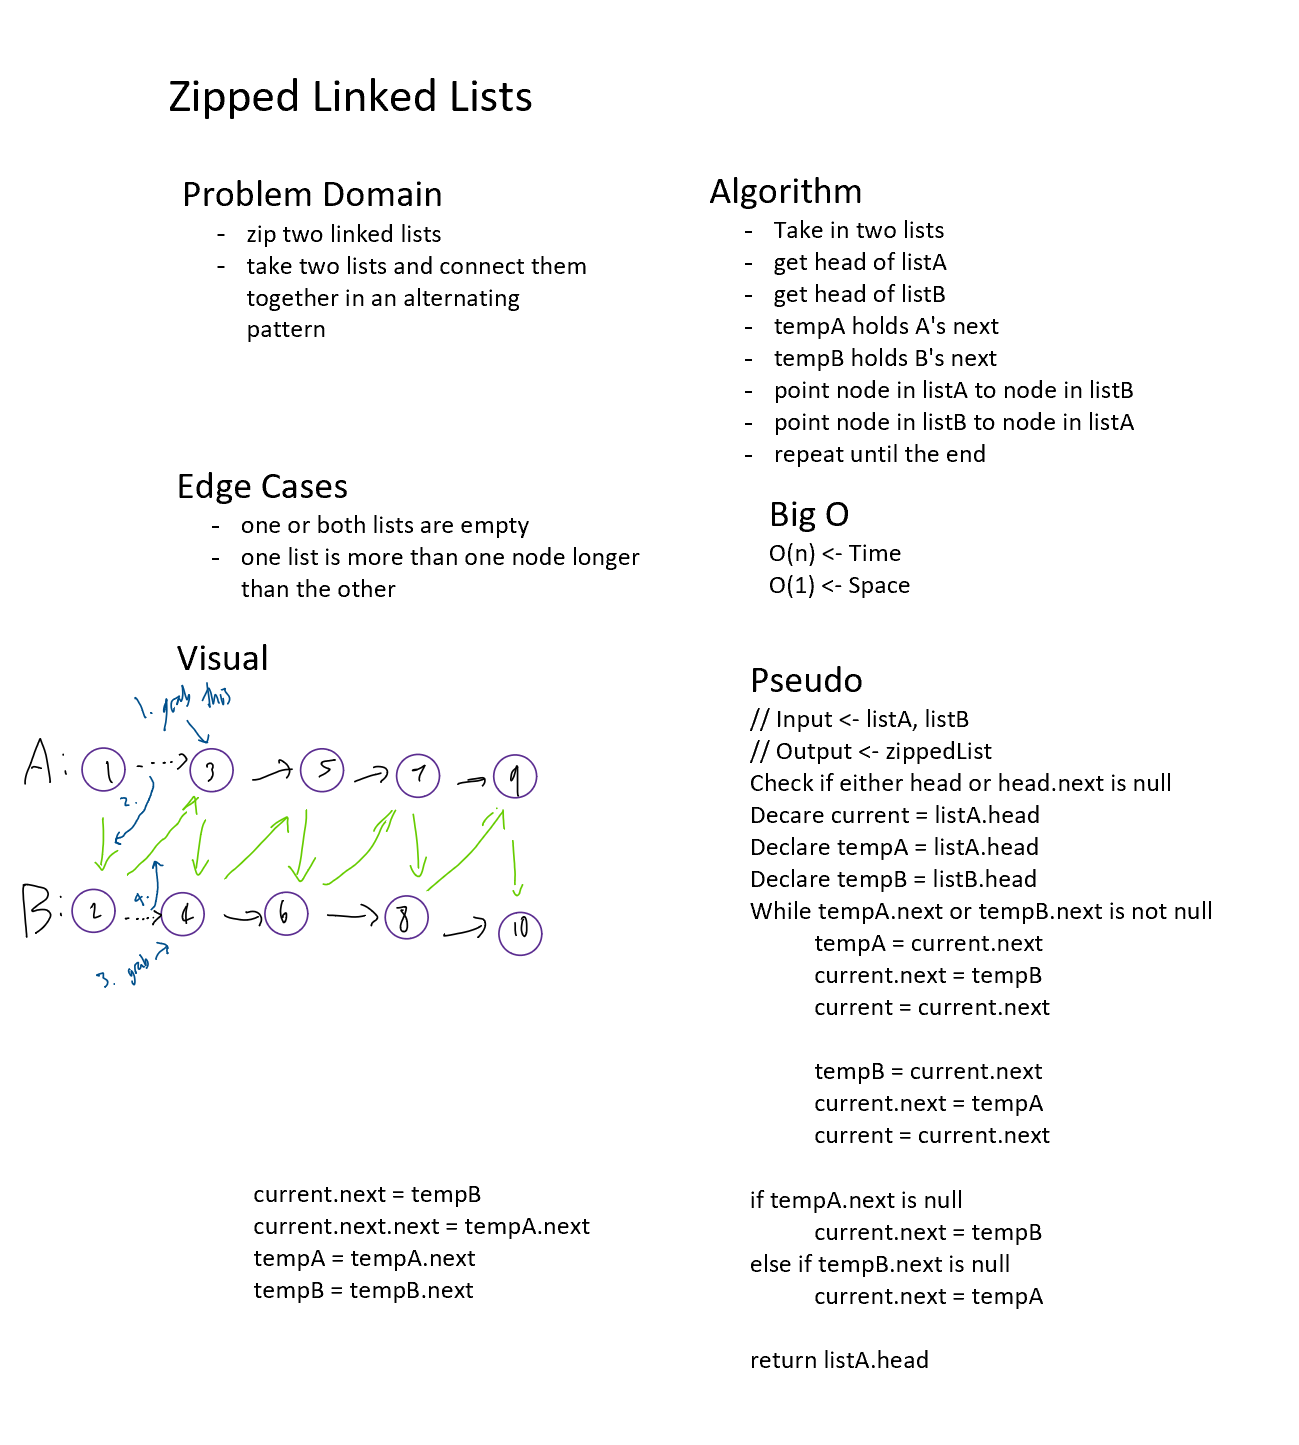 Zipped Linked Lists
Problem Domain
- zip two linked lists
- take two lists and connect them
together in an alternating
pattern
Edge Cases
- one or both lists are empty
- one list is more than one node longer
than the other
Visual
1. grab this
A: 1 3 5 7 9
2.
B: 2 4 6 8 10
4.
3. grab
current.next = tempB
current.next.next = tempA.next
tempA = tempA.next
tempB = tempB.next
Algorithm
- Take in two lists
- get head of listA
- get head of listB
- tempA holds A's next
- tempB holds B's next
- point node in listA to node in listB
- point node in listB to node in listA
- repeat until the end
Big O
O(n) <- Time
O(1) <- Space
Pseudo
// Input <- listA, listB
// Output <- zippedList
Check if either head or head.next is null
Decare current = listA.head
Declare tempA = listA.head
Declare tempB = listB.head
While tempA.next or tempB.next is not null
tempA = current.next
current.next = tempB
current = current.next
tempB = current.next
current.next = tempA
current = current.next
if tempA.next is null
current.next = tempB
else if tempB.next is null
current.next = tempA
return listA.head